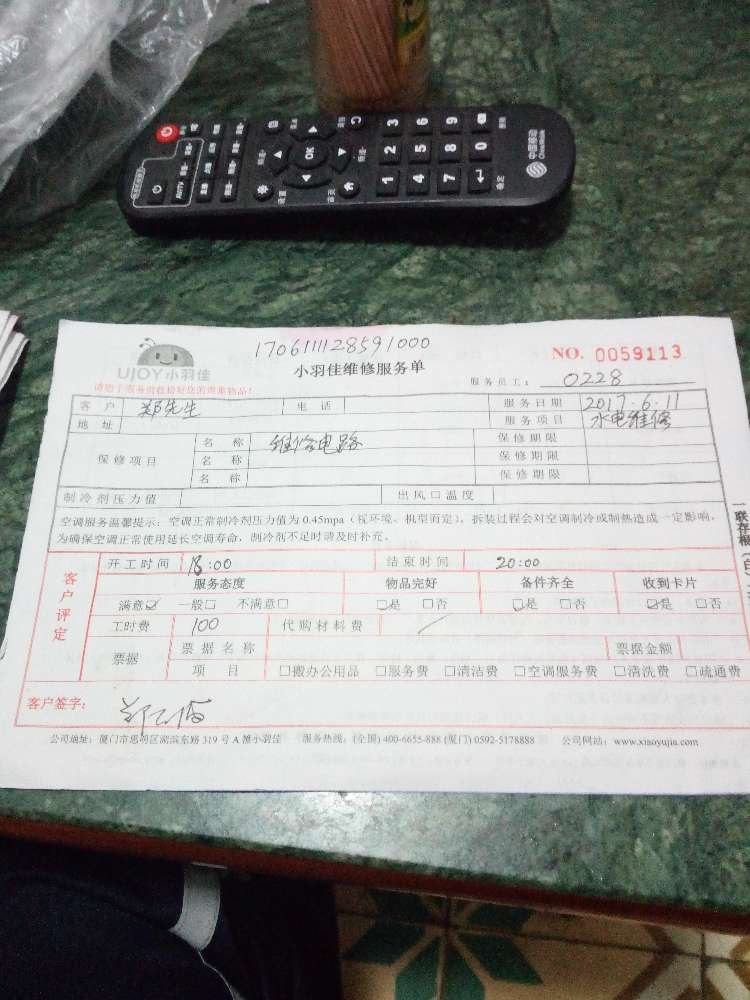 中国移动
China Mobile
OK
1 2 3
4 5 6
7 8 9
0
设置
首页
确定
170611128591000
UJOY小羽佳
小羽佳维修服务单
NO. 0059113
服务员工: 0228
客户 郑先生 电话 服务日期 2017.6.11
地址 服务项目 水电维修
保修项目 名称 维修电路 保修期限
名称 保修期限
名称 保修期限
制冷剂压力值 出风口温度
空调服务温馨提示:空调正常制冷剂压力值为0.45mpa(视环境、机型而定)。拆装过程会对空调制冷或制热造成一定影响,
为确保空调正常使用延长空调寿命,制冷剂不足时请及时补充。
客户评定
开工时间 18:00 结束时间 20:00
服务态度 物品完好 备件齐全 收到卡片
满意☑ 一般□ 不满意□ ☑是 □否 ☑是 □否 ☑是 □否
工时费 100 代购材料费 /
票据 票据名称 票据金额
项目 □搬办公用品 □服务费 □清洁费 □空调服务费 □清洗费 □疏通费
客户签字:
公司地址:厦门市思明区湖滨东路319号A幢小羽佳 服务热线:(全国) 400-6655-888 (厦门) 0592-5178888 公司网站:www.xiaoyujia.com
一联存根(白